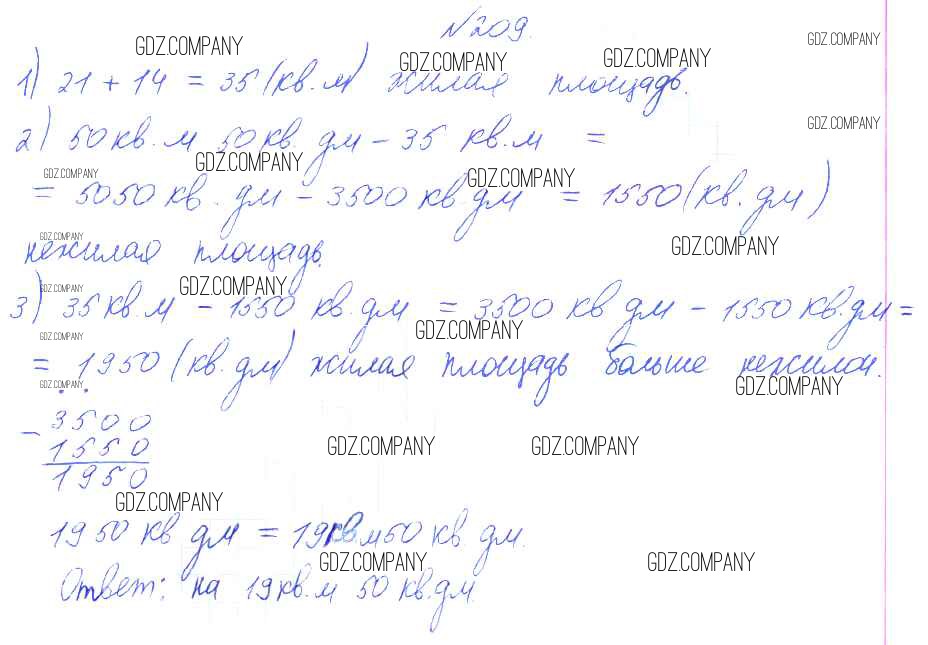 №209.
GDZ.COMPANY GDZ.COMPANY GDZ.COMPANY GDZ.COMPANY
1) 21 + 14 = 35 (кв. м) жилая площадь.
GDZ.COMPANY
2) 50 кв. м 50 кв. дм - 35 кв. м =
GDZ.COMPANY GDZ.COMPANY GDZ.COMPANY
= 5050 кв. дм - 3500 кв дм = 1550 (кв. дм)
GDZ.COMPANY GDZ.COMPANY
нежилая площадь.
GDZ.COMPANY GDZ.COMPANY
3) 35 кв. м - 1550 кв. дм = 3500 кв дм - 1550 кв. дм =
GDZ.COMPANY GDZ.COMPANY
= 1950 (кв. дм) жилая площадь больше нежилой.
GDZ.COMPANY GDZ.COMPANY
- 3500
1550
1950
GDZ.COMPANY GDZ.COMPANY
GDZ.COMPANY
1950 кв дм = 19 кв. м 50 кв. дм.
GDZ.COMPANY GDZ.COMPANY
Ответ: на 19 кв. м 50 кв. дм.